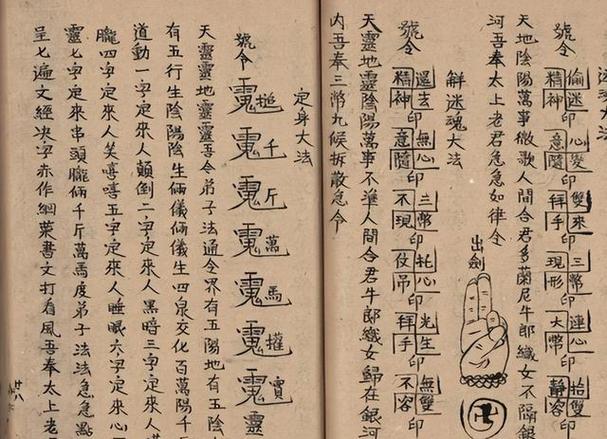 號令
偷迷 心變 雙來 三幣 連心 抬雙
精神印 意隨印 拜手印 現形印 大幣印 靜容
天地陰陽萬事微歌人間合君多蘭尼牛郎織女不隔銀
河吾奉太上老君急急如律令
出劍
卍
解迷魂大法
號令
還去 無心 三幣 牝心 光生 無雙
精神印 意隨印 不現印 仗吊印 拜手印 不容印
天靈地靈陰陽萬事不準人間合君牛郎織女歸在銀河
內吾奉三幣九候拆散急令
定身大法
號令
千 斤 萬 馬
靈
天靈靈地靈靈吾令弟子法通令界有五陽地有五陰
有五行生陰陽陰生倆儀倆儀生四泉交化百萬陽千
道動一字定來人顛倒二字定來人黑暗三字定來人
朧四字定來人笑嘻嘻五字定來人睡眠六字定來心
靈七字定來串頭朧倆千斤萬馬度弟子法法急急
呈七遍文經決字赤作綱葉書文打看風吾奉太上老
廿八